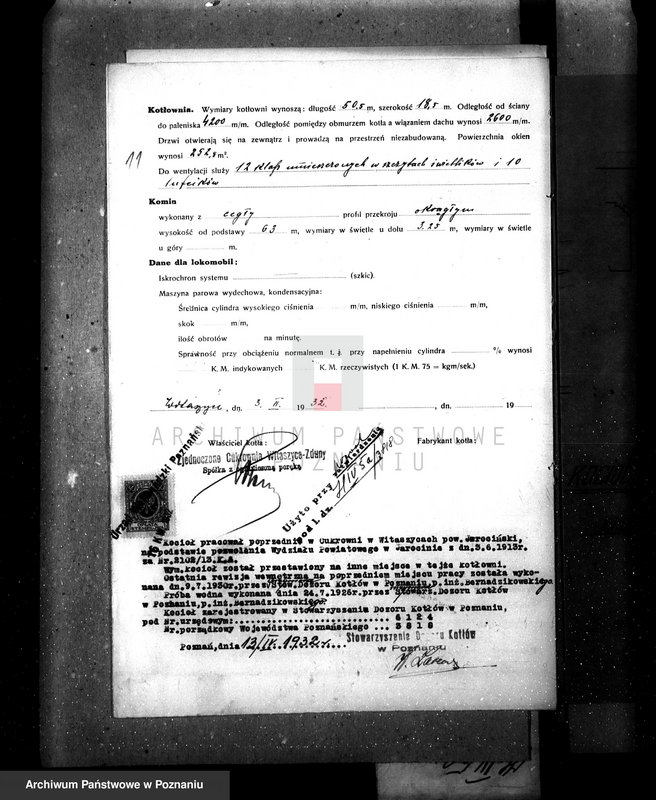 Kotłownia. Wymiary kotłowni wynoszą: długość 50,5 m, szerokość 18,5 m. Odległość od ściany
do paleniska 4200 m/m. Odległość pomiędzy obmurzem kotła a wiązaniem dachu wynosi 2600 m/m.
Drzwi otwierają się na zewnątrz i prowadzą na przestrzeń niezabudowaną. Powierzchnia okien
wynosi 252,8 m².
11
Do wentylacji służy 12 klap umieszczonych w szczytach świetlików i 10
lufcików
Komin
wykonany z cegły profil przekroju okrągłym
wysokość od podstawy 63 m, wymiary w świetle u dołu 3.25 m, wymiary w świetle
u góry m.
Dane dla lokomobil:
Iskrochron systemu (szkic).
Maszyna parowa wydechowa, kondensacyjna:
Średnica cylindra wysokiego ciśnienia m/m, niskiego ciśnienia m/m,
skok m/m,
ilość obrotów na minutę.
Sprawność przy obciążeniu normalnem t. j. przy napełnieniu cylindra % wynosi
K. M. indykowanych K. M. rzeczywistych (1 K. M. 75 = kgm/sek.)
Witaszyce, dn. 3. II. 1932. , dn. 19
ARCHIWUM PAŃSTWOWE
W POZNANIU
Właściciel kotła: Fabrykant kotła:
Zjednoczone Cukrownie Witaszyce-Zduny
Spółka z ograniczoną poręką
Użyto przy
od l. dz.
Kocioł pracował poprzednio w Cukrowni w Witaszycach pow. Jarociński,
na podstawie pozwolenia Wydziału Powiatowego w Jarocinie z dn. 3.6.1913r.
za Nr. 2102/13.K.A.
Wym. kocioł został przestawiony na inne miejsce w tejże kotłowni.
Ostatnia rewizja wewnętrzna na poprzedniem miejscu przy została wyko-
nana dn. 9.7.1930r. przez Stow. Dozoru Kotłów w Poznaniu, p. inż. Bernadzikowskiego
Próba wodna wykonana dnia 24.7.1926r. przez Stowarz. Dozoru Kotłów
w Poznaniu, p. inż. Bernadzikowskiego.
Kocioł zarejestrowany w Stowarzyszeniu Dozoru Kotłów w Poznaniu,
pod Nr. urzędowym: 6124
Nr. porządkowy Województwa Poznańskiego ... 3818
Poznań, dnia 13/IV. 1932 r.
Stowarzyszenie Dozoru Kotłów
w Poznaniu
Archiwum Państwowe w Poznaniu